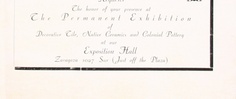 The honor of your presence at
The Permanent Exhibition
of
Decorative Tile, Native Ceramics and Colonial Pottery
at our
Exposition Hall
Zaragoza (Just off the Plaza)